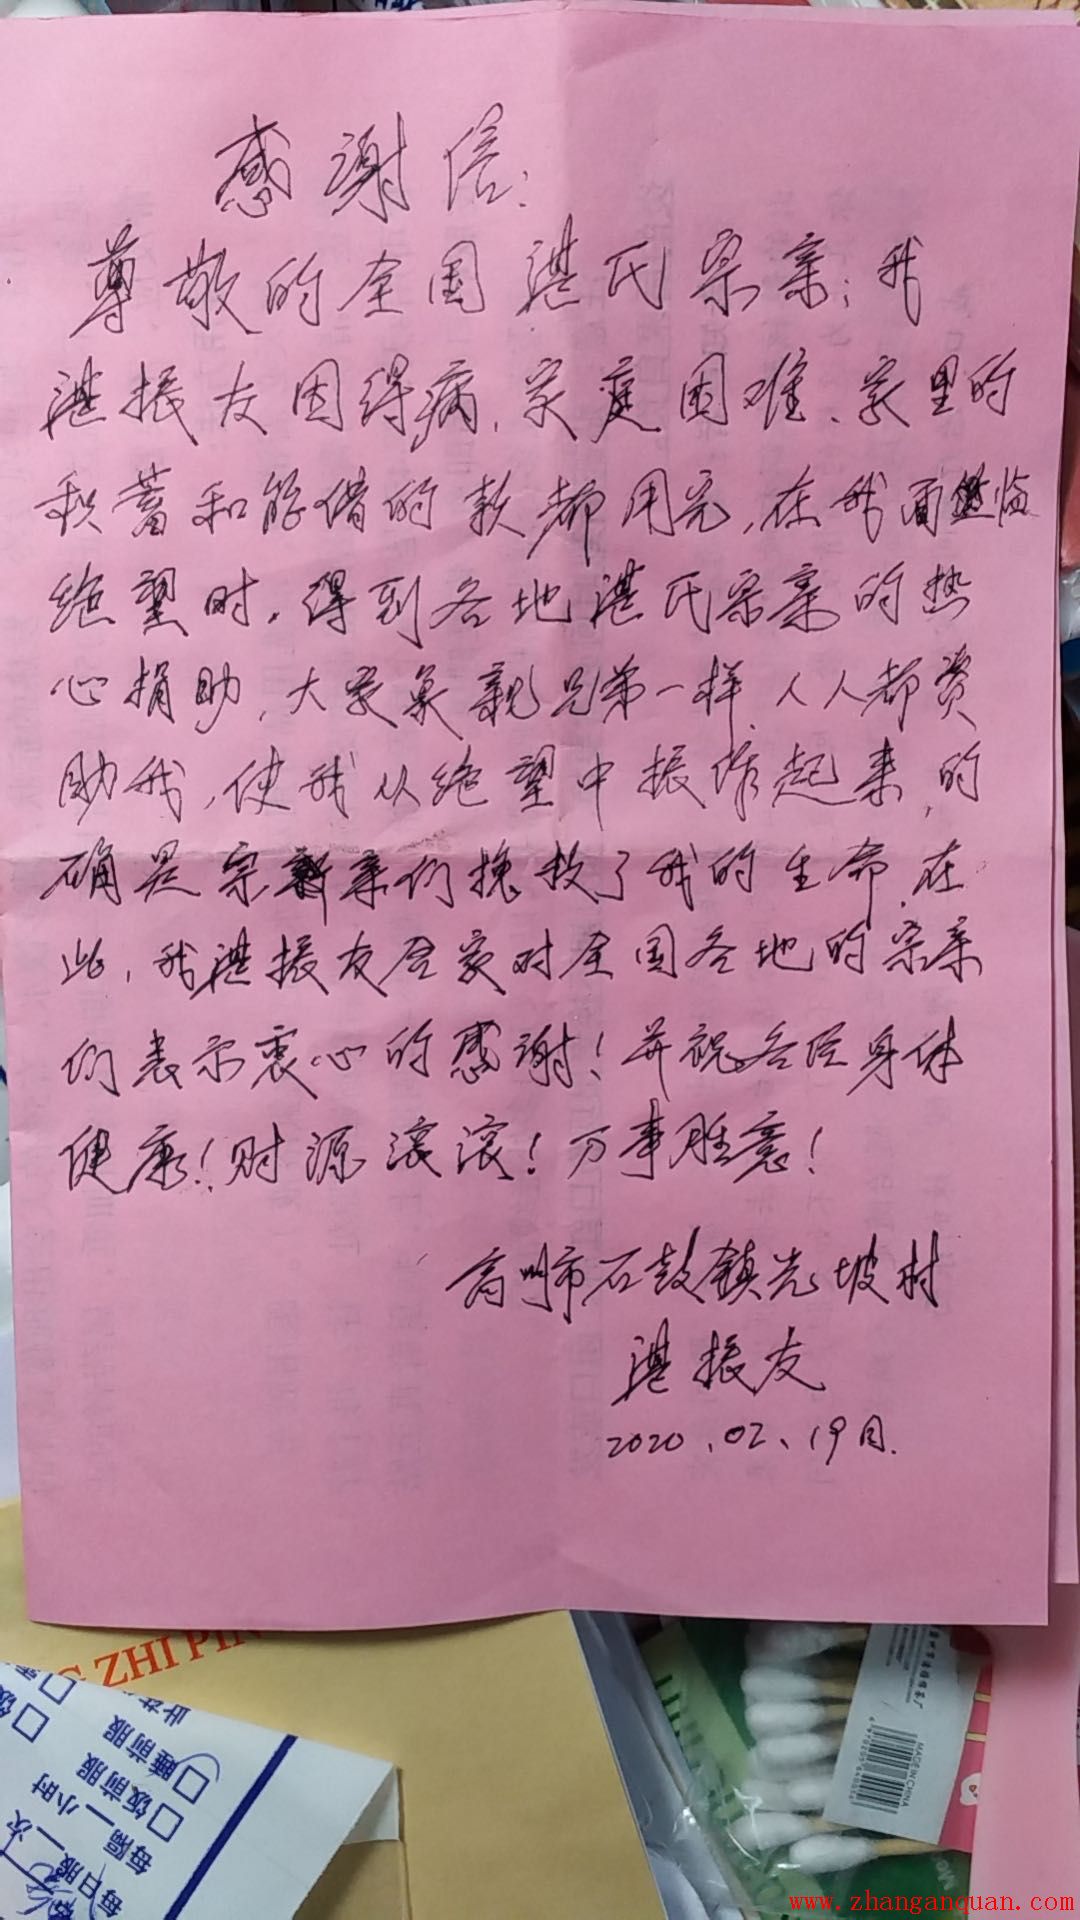 感谢信:
尊敬的全国湛氏宗亲:我
湛振友因得病,家庭困难、家里的
积蓄和能借的款都用完,在我面临
绝望时,得到各地湛氏宗亲的热
心捐助,大家象亲兄弟一样,人人都资
助我,使我从绝望中振作起来,的
确是宗亲们挽救了我的生命,在
此,我湛振友全家对全国各地的宗亲
们表示衷心的感谢!并祝各位身体
健康!财源滚滚!万事胜意!
高州市石鼓镇光坡村
湛振友
2020、02、19日.
ZHI PIN
睡前服
饭前服
每隔一小时
每日服一次
MADE IN CHINA
www.zhanganquan.com